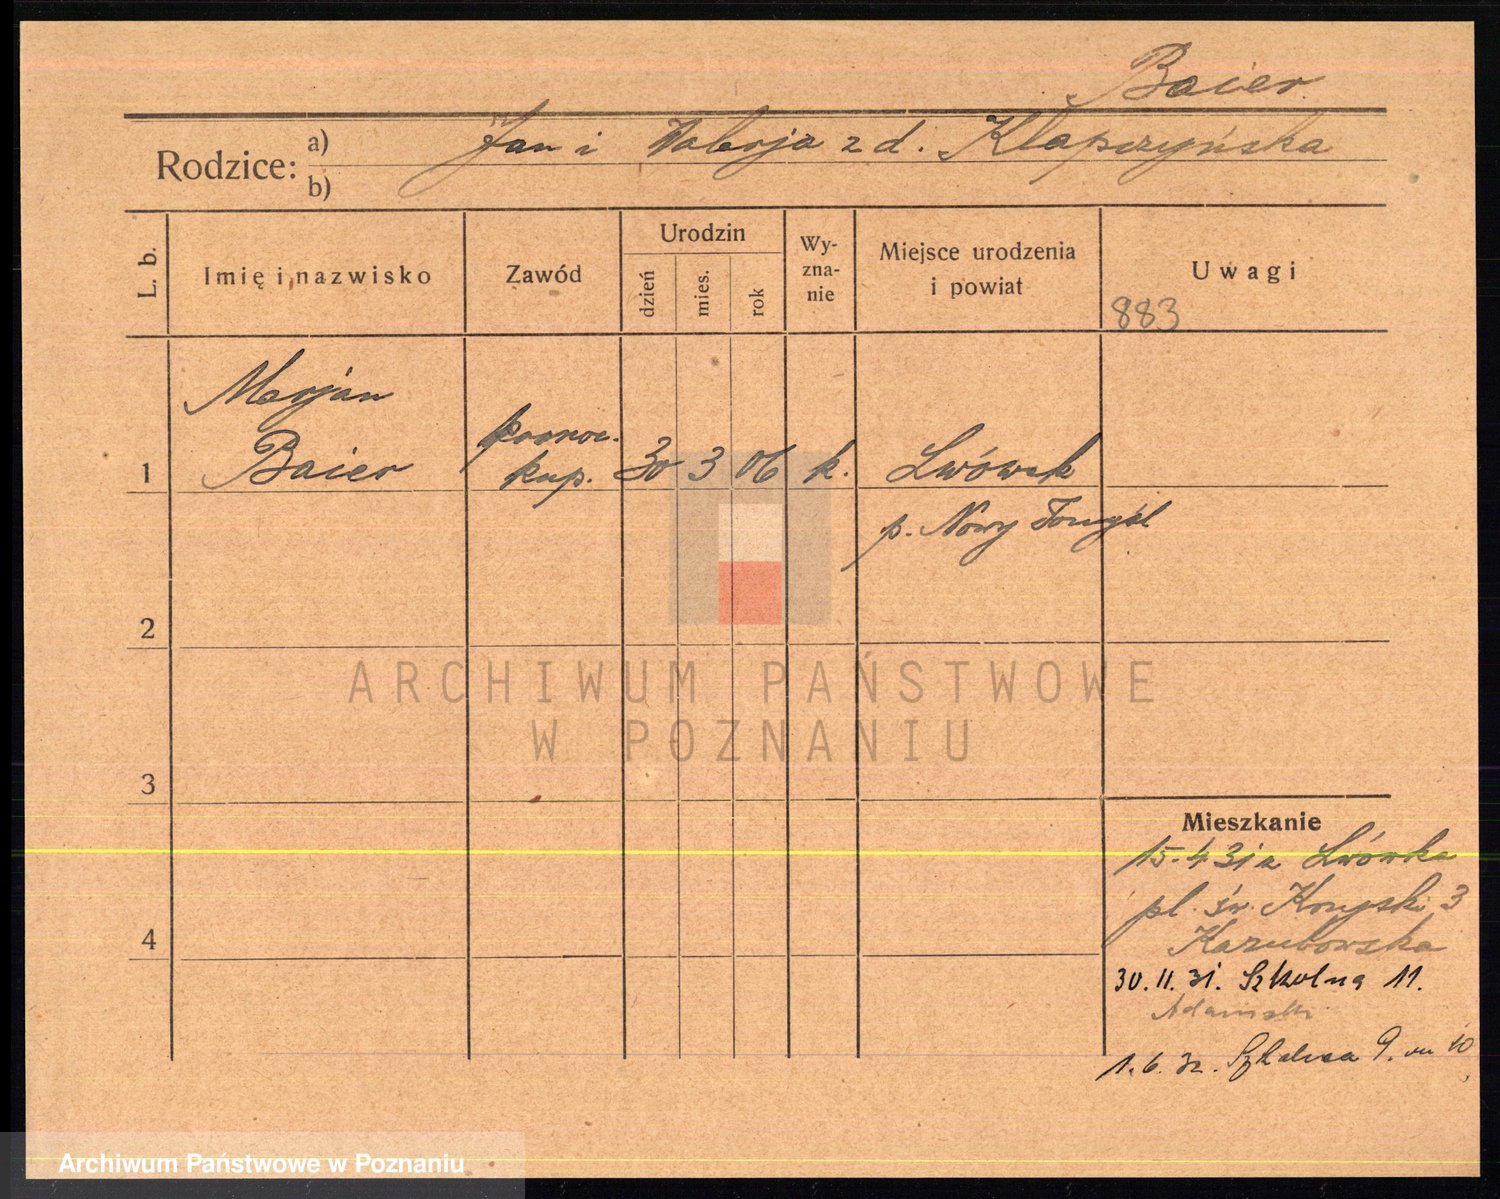 Baier
Rodzice:
a) Jan i Walerja z d. Klapczyńska
b)
L. b.
Imię i nazwisko
Zawód
Urodzin
dzień
mies.
rok
Wy-
zna-
nie
Miejsce urodzenia
i powiat
Uwagi
883
Marjan
1 Baier
pomoc.
kup.
30 3 06 k.
Lwówek
p. Nowy Tomyśl
2
3
4
ARCHIWUM PAŃSTWOWE
W POZNANIU
Mieszkanie
15.4 31 z Lwówka
pl. św. Krzyski 3
Kazubowska
30.11.31. Szkolna 11.
Adamski
1.6.32. Szkolna 9. m 10
Archiwum Państwowe w Poznaniu